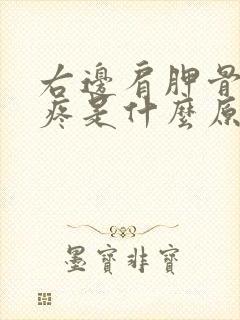 右邊肩胛骨
疼是什麼原
墨寶非寶